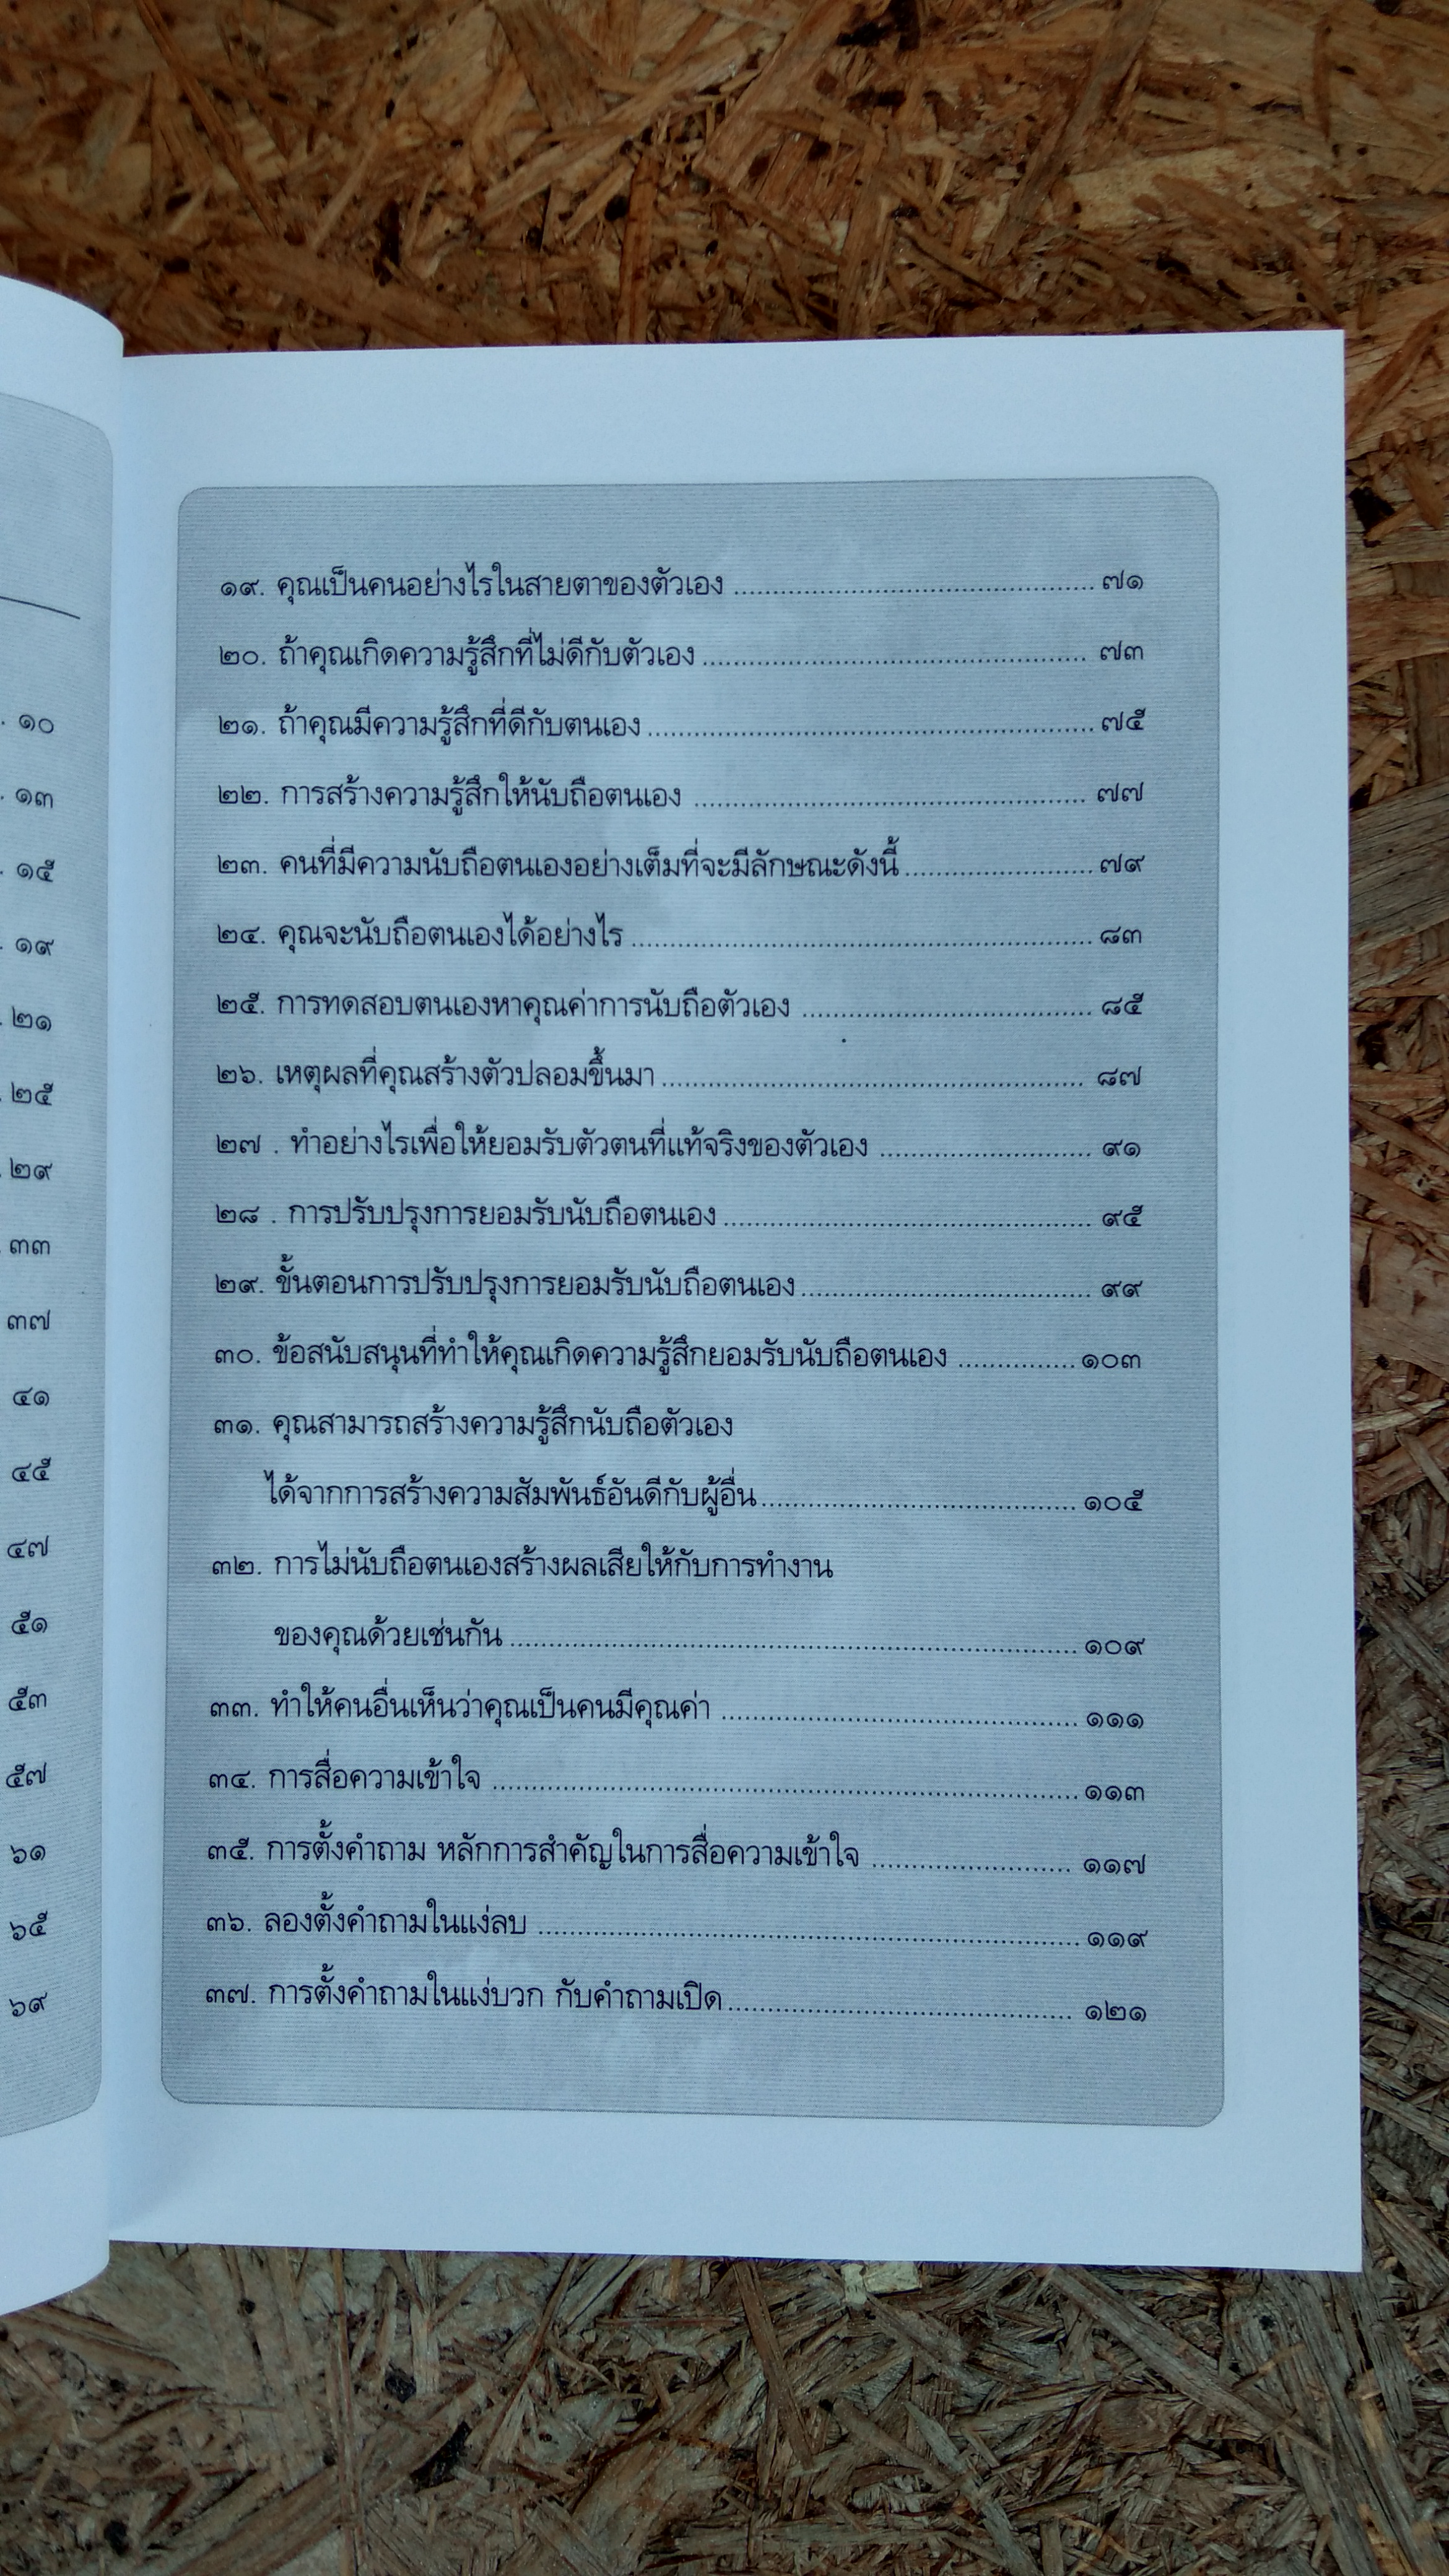 . ๑๐
. ๑๓
. ๑๕
. ๑๙
. ๒๑
. ๒๕
. ๒๙
. ๓๓
๓๗
๔๑
๔๕
๔๗
๕๑
๕๓
๕๗
๖๑
๖๕
๖๙
๑๙. คุณเป็นคนอย่างไรในสายตาของตัวเอง ........................................ ๗๑
๒๐. ถ้าคุณเกิดความรู้สึกที่ไม่ดีกับตัวเอง ........................................ ๗๓
๒๑. ถ้าคุณมีความรู้สึกที่ดีกับตนเอง ........................................ ๗๕
๒๒. การสร้างความรู้สึกให้นับถือตนเอง ........................................ ๗๗
๒๓. คนที่มีความนับถือตนเองอย่างเต็มที่จะมีลักษณะดังนี้ .................... ๗๙
๒๔. คุณจะนับถือตนเองได้อย่างไร ........................................ ๘๓
๒๕. การทดสอบตนเองหาคุณค่าการนับถือตัวเอง .............................. ๘๕
๒๖. เหตุผลที่คุณสร้างตัวปลอมขึ้นมา ........................................ ๘๗
๒๗ . ทำอย่างไรเพื่อให้ยอมรับตัวตนที่แท้จริงของตัวเอง .................... ๙๑
๒๘ . การปรับปรุงการยอมรับนับถือตนเอง ................................... ๙๕
๒๙. ขั้นตอนการปรับปรุงการยอมรับนับถือตนเอง .............................. ๙๙
๓๐. ข้อสนับสนุนที่ทำให้คุณเกิดความรู้สึกยอมรับนับถือตนเอง ............... ๑๐๓
๓๑. คุณสามารถสร้างความรู้สึกนับถือตัวเอง
ได้จากการสร้างความสัมพันธ์อันดีกับผู้อื่น .............................. ๑๐๕
๓๒. การไม่นับถือตนเองสร้างผลเสียให้กับการทำงาน
ของคุณด้วยเช่นกัน .................................................. ๑๐๙
๓๓. ทำให้คนอื่นเห็นว่าคุณเป็นคนมีคุณค่า ................................... ๑๑๑
๓๔. การสื่อความเข้าใจ .................................................. ๑๑๓
๓๕. การตั้งคำถาม หลักการสำคัญในการสื่อความเข้าใจ .................... ๑๑๗
๓๖. ลองตั้งคำถามในแง่ลบ .................................................. ๑๑๙
๓๗. การตั้งคำถามในแง่บวก กับคำถามเปิด ................................... ๑๒๑